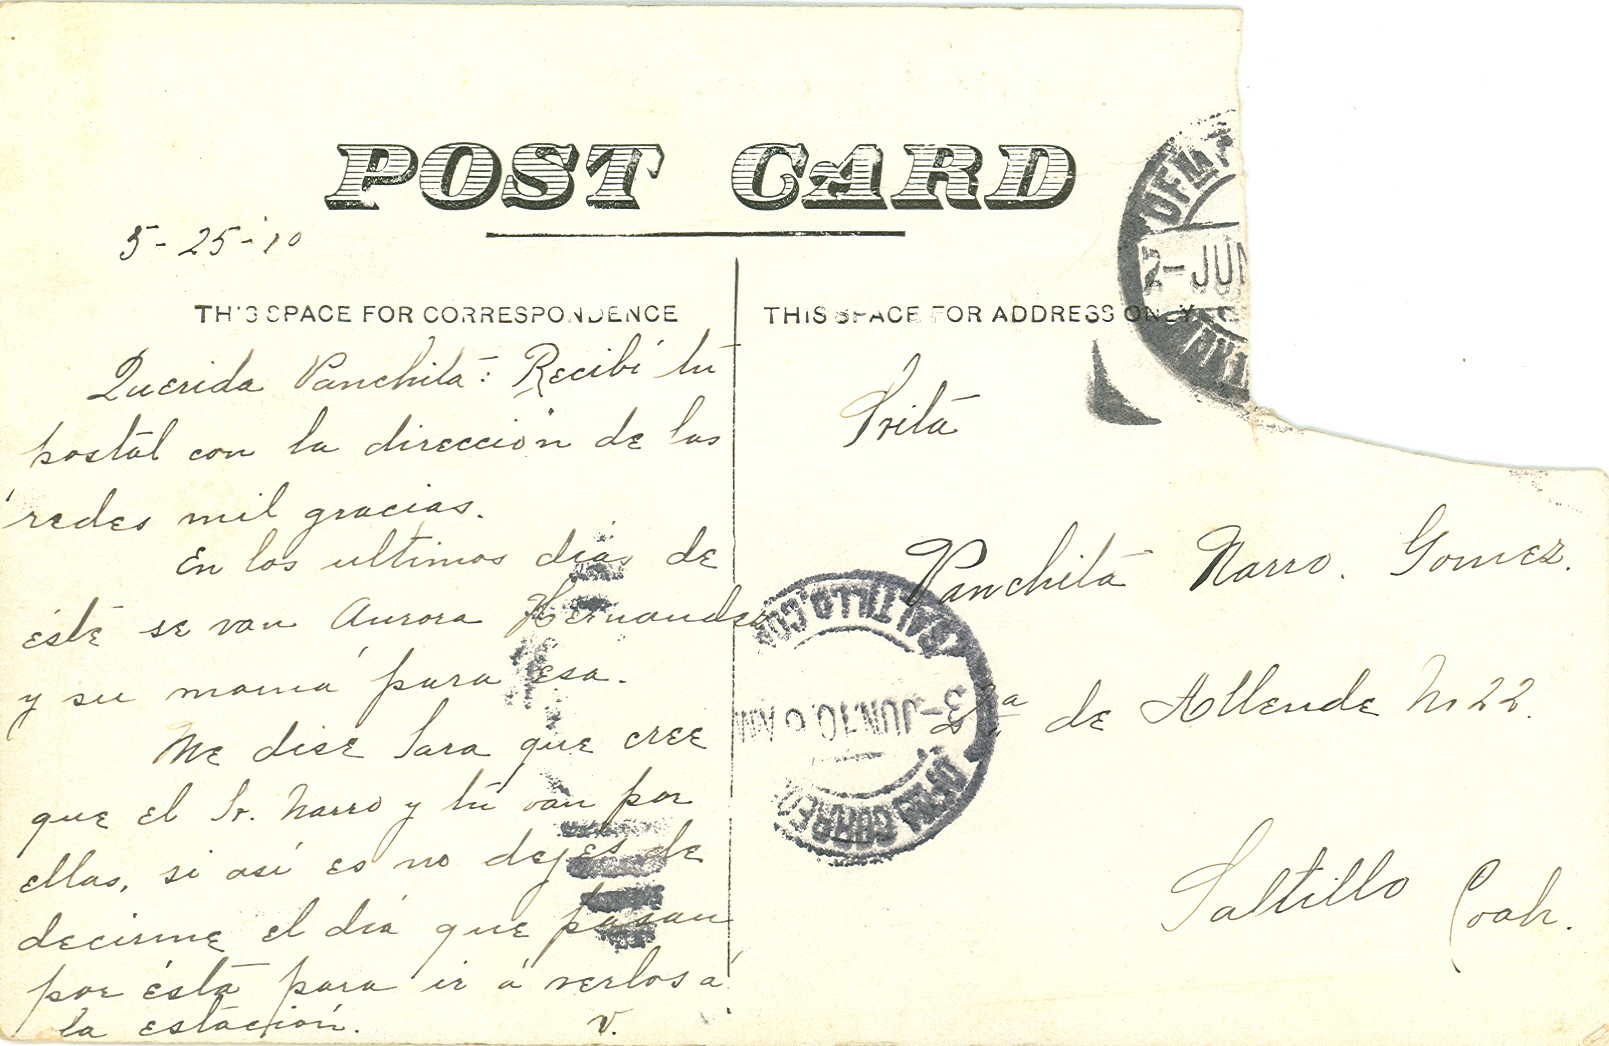 POST CARD
5-25-10
THIS SPACE FOR CORRESPONDENCE
THIS SPACE FOR ADDRESS ONLY
Querida Panchita: Recibí tu
postal con la dirección de las
redes mil gracias.
En los ultimos dias de
éste se van Aurora Hernandez
y su mamá para esa.
Me dise Sara que cree
que el Sr. Narro y tú van por
ellas, si así es no dejes de
decirme el día que pasan
por ésta para ir á verlos á
la estación. V.
Srita
Panchita Narro. Gomez.
2a de Allende No 22.
Saltillo Coah.
2-JUN
SALTILLO. COA
3-JUN. 10. 6 AM
CORREO